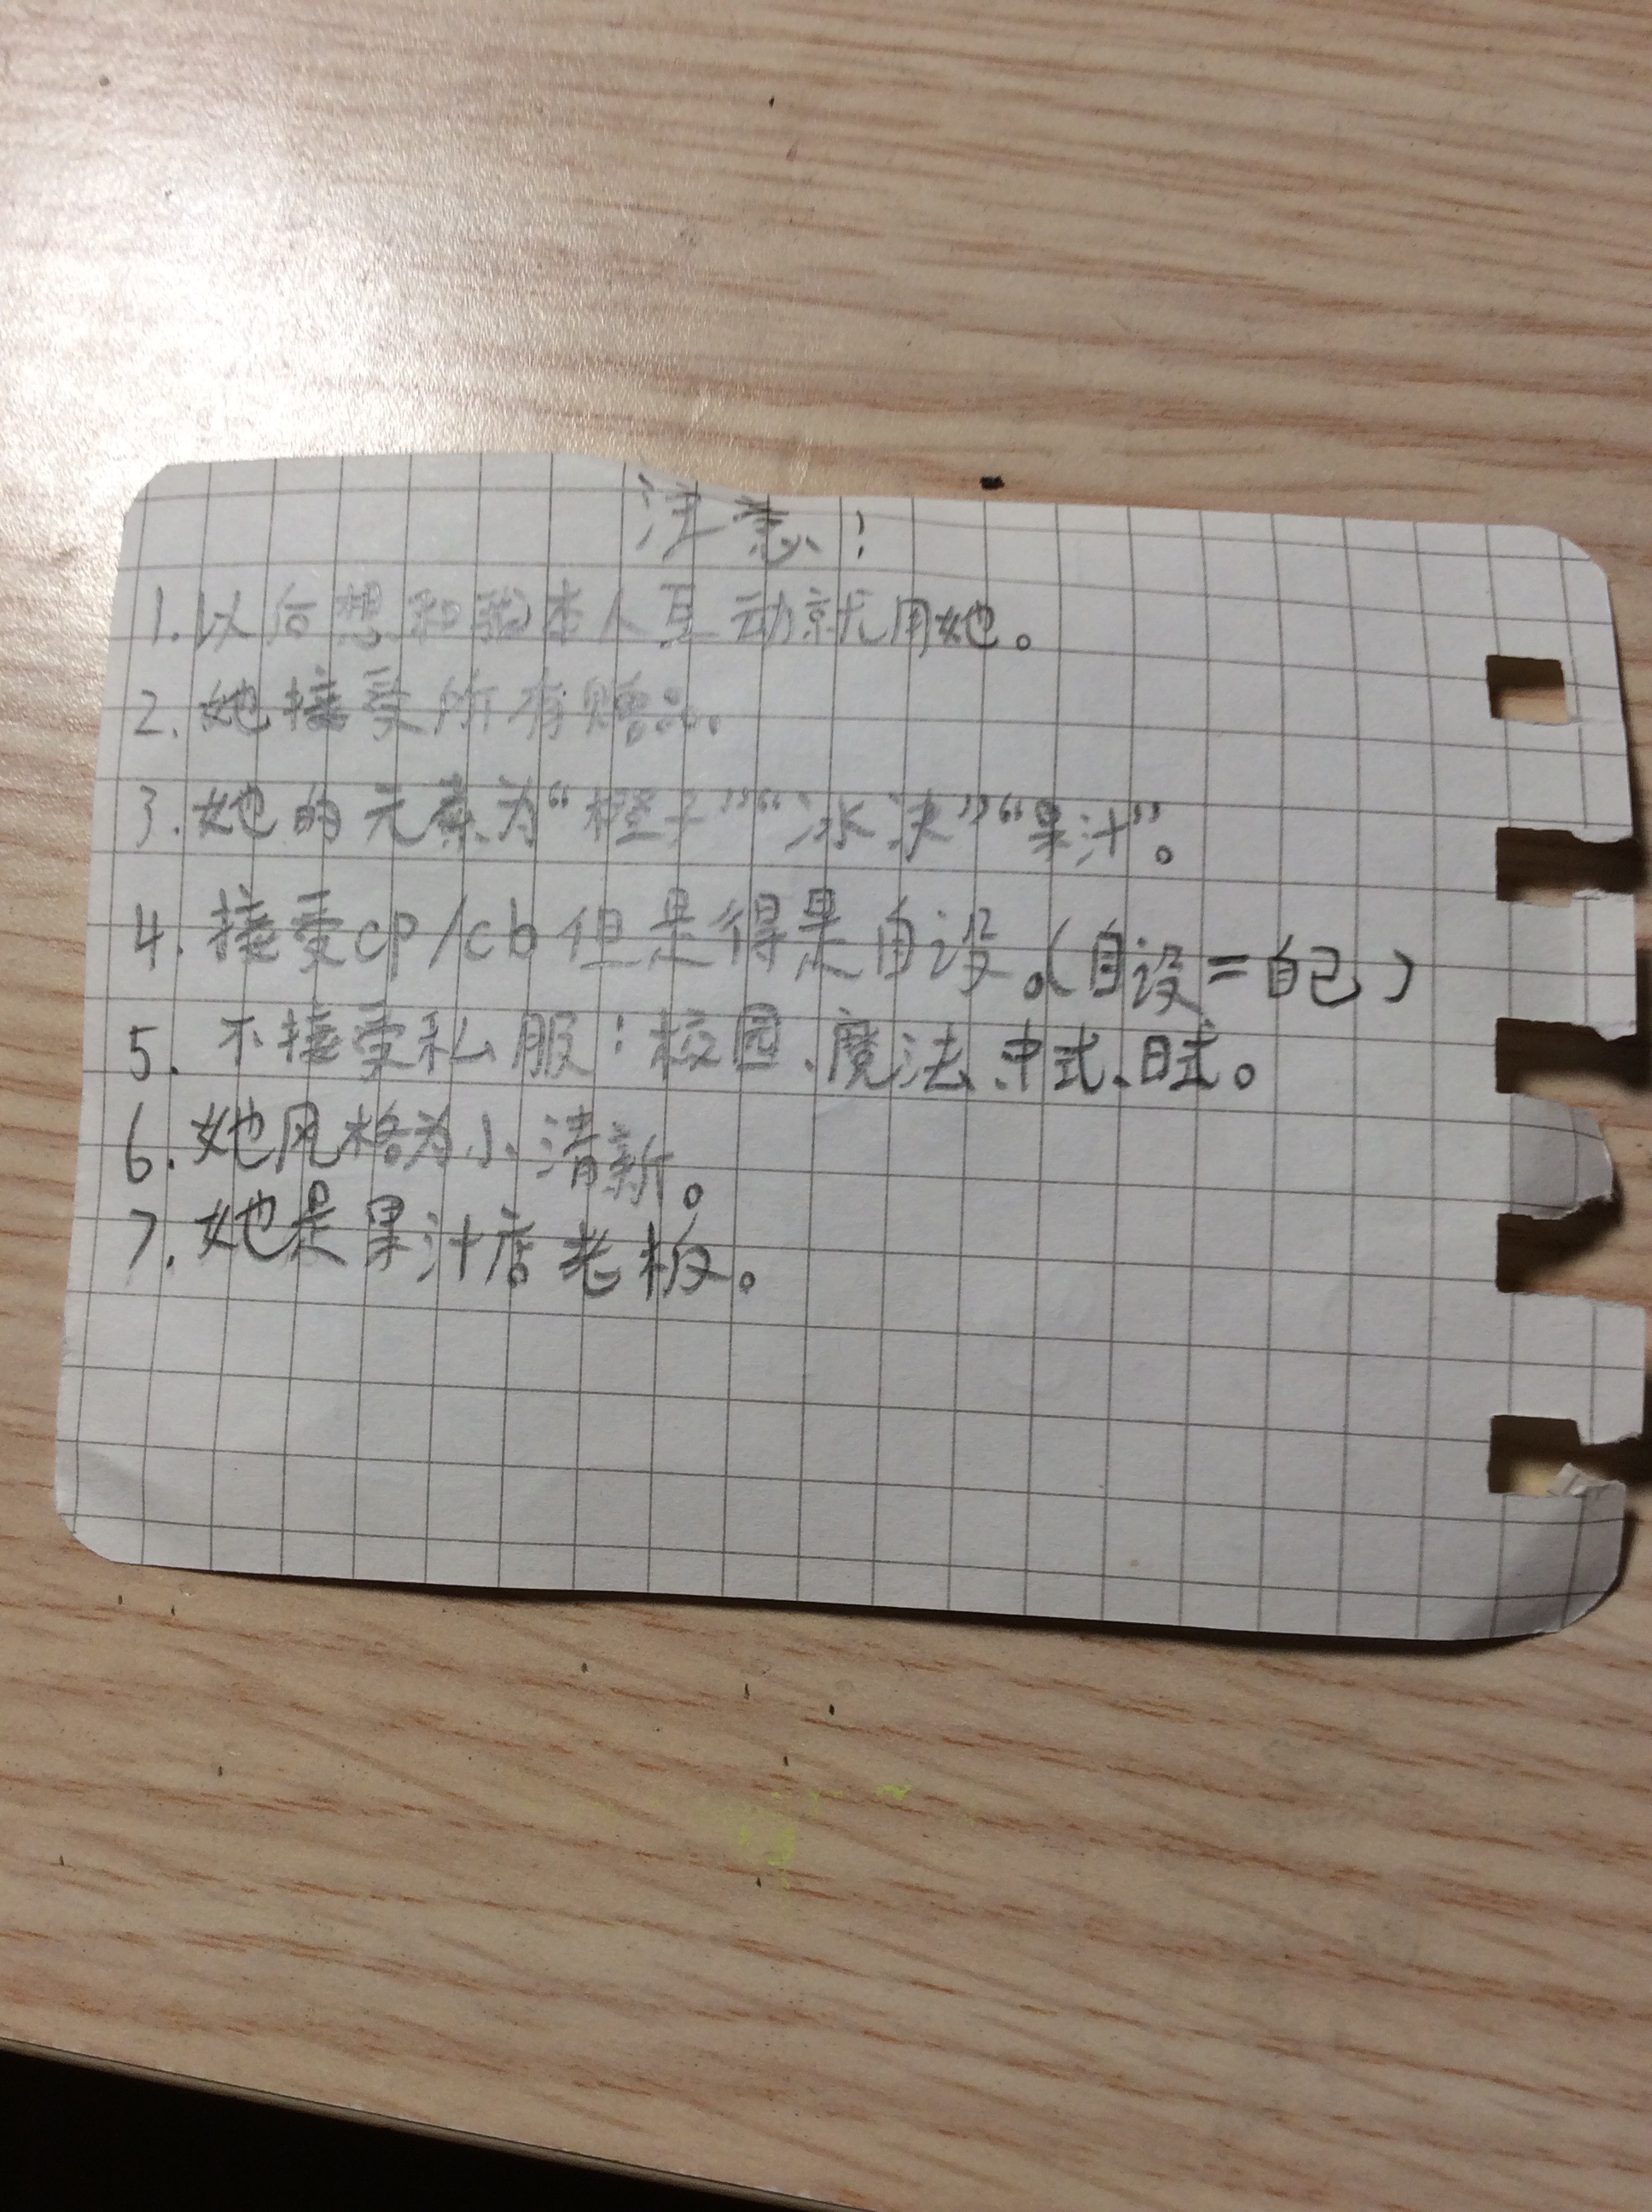 注意!
1.以后想和我本人互动就用她。
2.她接受所有赠品。
3.她的元素为“橙子”“冰冻”“果汁”。
4.接受cp/cb但是得是自设。(自设=自己)
5.不接受私服:校园、魔法、中式、日式。
6.她风格为小清新。
7.她是果汁店老板。